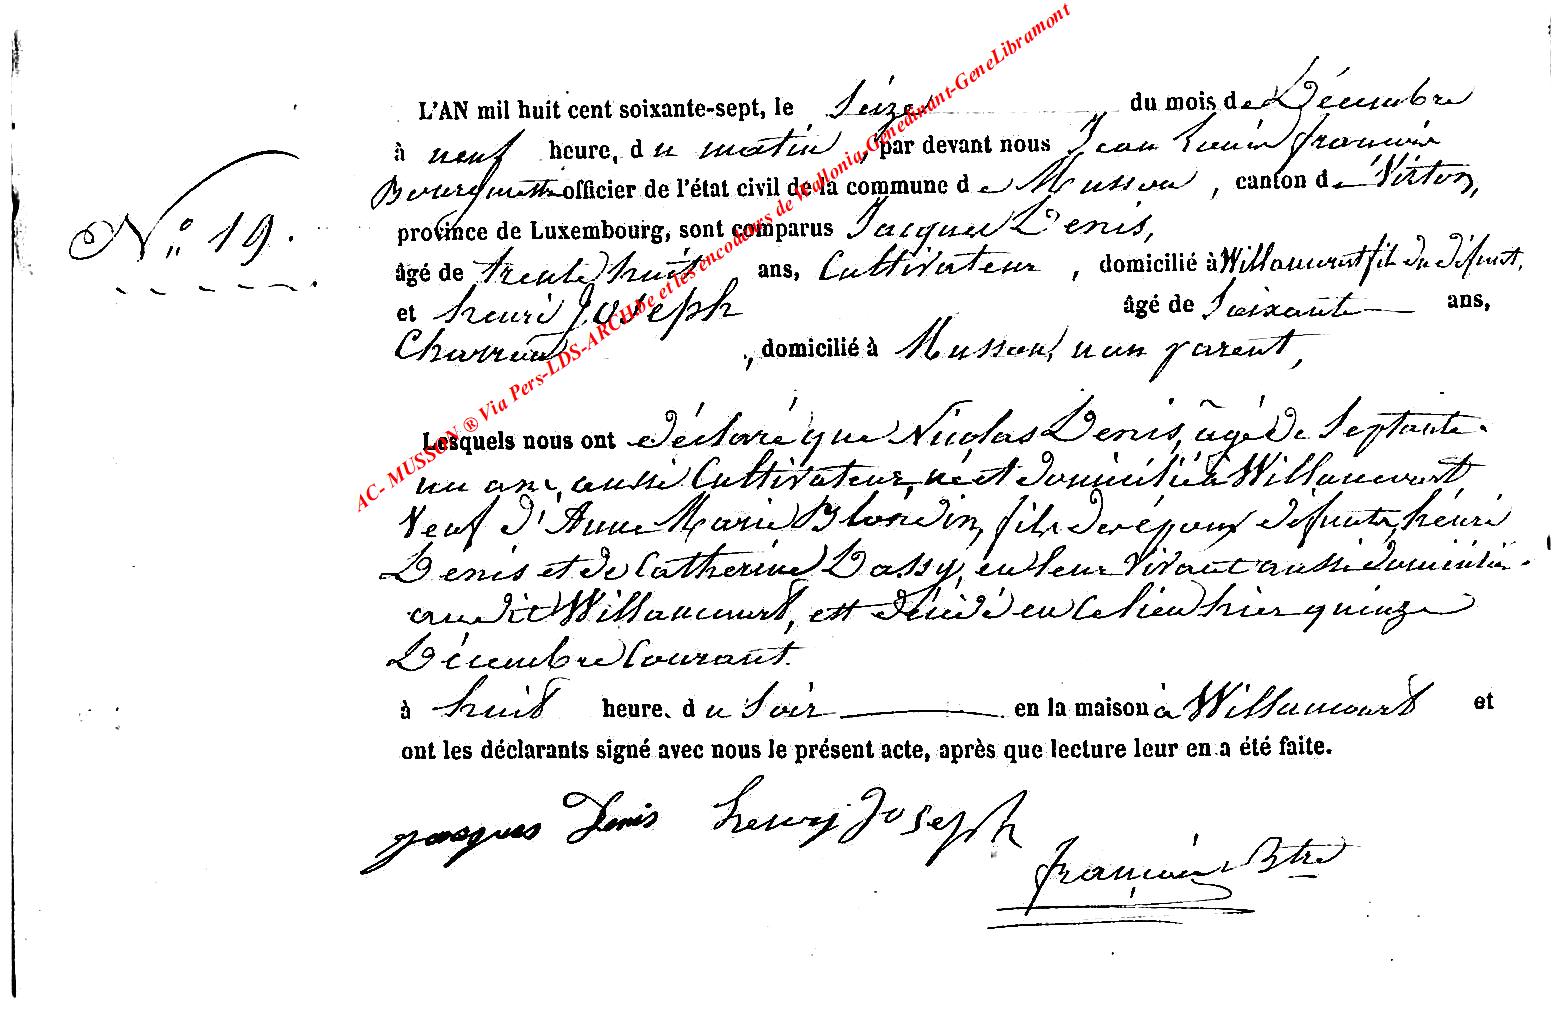 L'AN mil huit cent soixante-sept, le Seize du mois de Décembre
à neuf heure, du matin, par devant nous Jean Louis françois
Bourgmestre officier de l'état civil de la commune de Musson, canton de Virton,
N° 19.
province de Luxembourg, sont comparus Jacques Denis,
âgé de trente huit ans, Cultivateur, domicilié à Willancourt fils du défunt,
et henri Joseph âgé de Soixante ans,
Charron, domicilié à Musson, non parent,
Lesquels nous ont déclaré que Nicolas Denis, âgé de Septante
un ans, aussi Cultivateur, né et domicilié à Willancourt
Veuf d'Anne Marie Blondin, fils des époux défunts, henri
Denis et de Catherine Dassy, en leur vivant aussi domiciliés
au dit Willancourt, est décédé en ce lieu hier quinze
Décembre Courant.
à huit heure. du Soir en la maison à Willancourt et
ont les déclarants signé avec nous le présent acte, après que lecture leur en a été faite.
jacques Denis henry Joseph
françois Btre
AC- MUSSON ® Via Pers-LDS-ARCH.be et les encodeurs de Wallonia-Genedinant-GeneLibramont